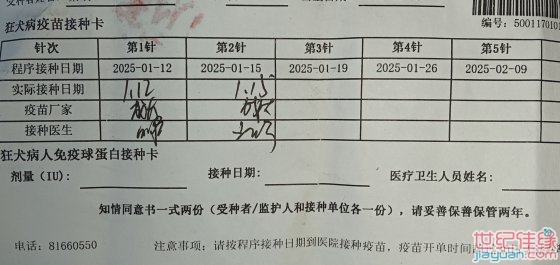 狂犬病疫苗接种卡
编号：5001170101
针次 第1针 第2针 第3针 第4针 第5针
程序接种日期 2025-01-12 2025-01-15 2025-01-19 2025-01-26 2025-02-09
实际接种日期 1.12 1.15
疫苗厂家
接种医生
狂犬病人免疫球蛋白接种卡
剂量（IU）： 接种日期： 医疗卫生人员姓名：
知情同意书一式两份（受种者/监护人和接种单位各一份），请妥善保善保管两年。
电话：81660550 注意事项：请按程序接种日期到医院接种疫苗，疫苗开单时间
世纪佳缘
jiayuan.com